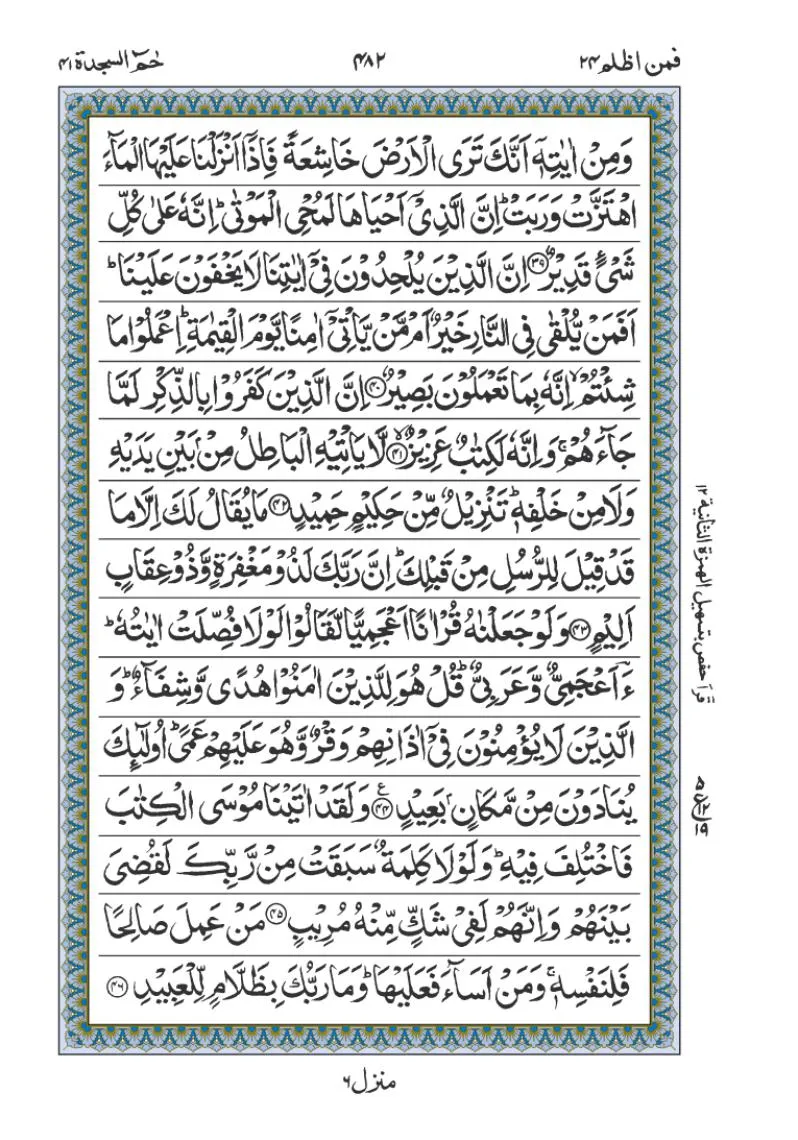 فمن اظلم ۲۴
۴۸۲
حٰمٓ السجدۃ ۴۱
وَمِنْ اٰيٰتِهٖۤ اَنَّكَ تَرَى الْاَرْضَ خَاشِعَةً فَاِذَاۤ اَنْزَلْنَا عَلَيْهَا الْمَآءَ
اهْتَزَّتْ وَرَبَتْ ؕ اِنَّ الَّذِيْۤ اَحْيَاهَا لَمُحْيِ الْمَوْتٰى ؕ اِنَّهٗ عَلٰى كُلِّ
شَيْءٍ قَدِيْرٌ ﴿۳۹﴾ اِنَّ الَّذِيْنَ يُلْحِدُوْنَ فِيْۤ اٰيٰتِنَا لَا يَخْفَوْنَ عَلَيْنَا ؕ
اَفَمَنْ يُّلْقٰى فِي النَّارِ خَيْرٌ اَمْ مَّنْ يَّاْتِيْۤ اٰمِنًا يَّوْمَ الْقِيٰمَةِ ؕ اِعْمَلُوْا مَا
شِئْتُمْ ۙ اِنَّهٗ بِمَا تَعْمَلُوْنَ بَصِيْرٌ ﴿۴۰﴾ اِنَّ الَّذِيْنَ كَفَرُوْا بِالذِّكْرِ لَمَّا
جَآءَهُمْ ۚ وَاِنَّهٗ لَكِتٰبٌ عَزِيْزٌ ﴿۴۱﴾ ۙ لَّا يَاْتِيْهِ الْبَاطِلُ مِنْۢ بَيْنِ يَدَيْهِ
وَلَا مِنْ خَلْفِهٖ ؕ تَنْزِيْلٌ مِّنْ حَكِيْمٍ حَمِيْدٍ ﴿۴۲﴾ مَا يُقَالُ لَكَ اِلَّا مَا
قَدْ قِيْلَ لِلرُّسُلِ مِنْ قَبْلِكَ ؕ اِنَّ رَبَّكَ لَذُوْ مَغْفِرَةٍ وَّذُوْ عِقَابٍ
اَلِيْمٍ ﴿۴۳﴾ وَلَوْ جَعَلْنٰهُ قُرْاٰنًا اَعْجَمِيًّا لَّقَالُوْا لَوْلَا فُصِّلَتْ اٰيٰتُهٗ ؕ
ءَاَعْجَمِيٌّ وَّعَرَبِيٌّ ؕ قُلْ هُوَ لِلَّذِيْنَ اٰمَنُوْا هُدًى وَّشِفَآءٌ ؕ وَ
الَّذِيْنَ لَا يُؤْمِنُوْنَ فِيْۤ اٰذَانِهِمْ وَقْرٌ وَّهُوَ عَلَيْهِمْ عَمًى ؕ اُولٰٓئِكَ
يُنَادَوْنَ مِنْ مَّكَانٍۭ بَعِيْدٍ ﴿۴۴﴾ ع وَلَقَدْ اٰتَيْنَا مُوْسَى الْكِتٰبَ
فَاخْتُلِفَ فِيْهِ ؕ وَلَوْلَا كَلِمَةٌ سَبَقَتْ مِنْ رَّبِّكَ لَقُضِيَ
بَيْنَهُمْ ؕ وَاِنَّهُمْ لَفِيْ شَكٍّ مِّنْهُ مُرِيْبٍ ﴿۴۵﴾ مَنْ عَمِلَ صَالِحًا
فَلِنَفْسِهٖ ۚ وَمَنْ اَسَآءَ فَعَلَيْهَا ؕ وَمَا رَبُّكَ بِظَلَّامٍ لِّلْعَبِيْدِ ﴿۴۶﴾
قرأ حفص بتسهيل الهمزة الثانية ۱۲
منزل ۶